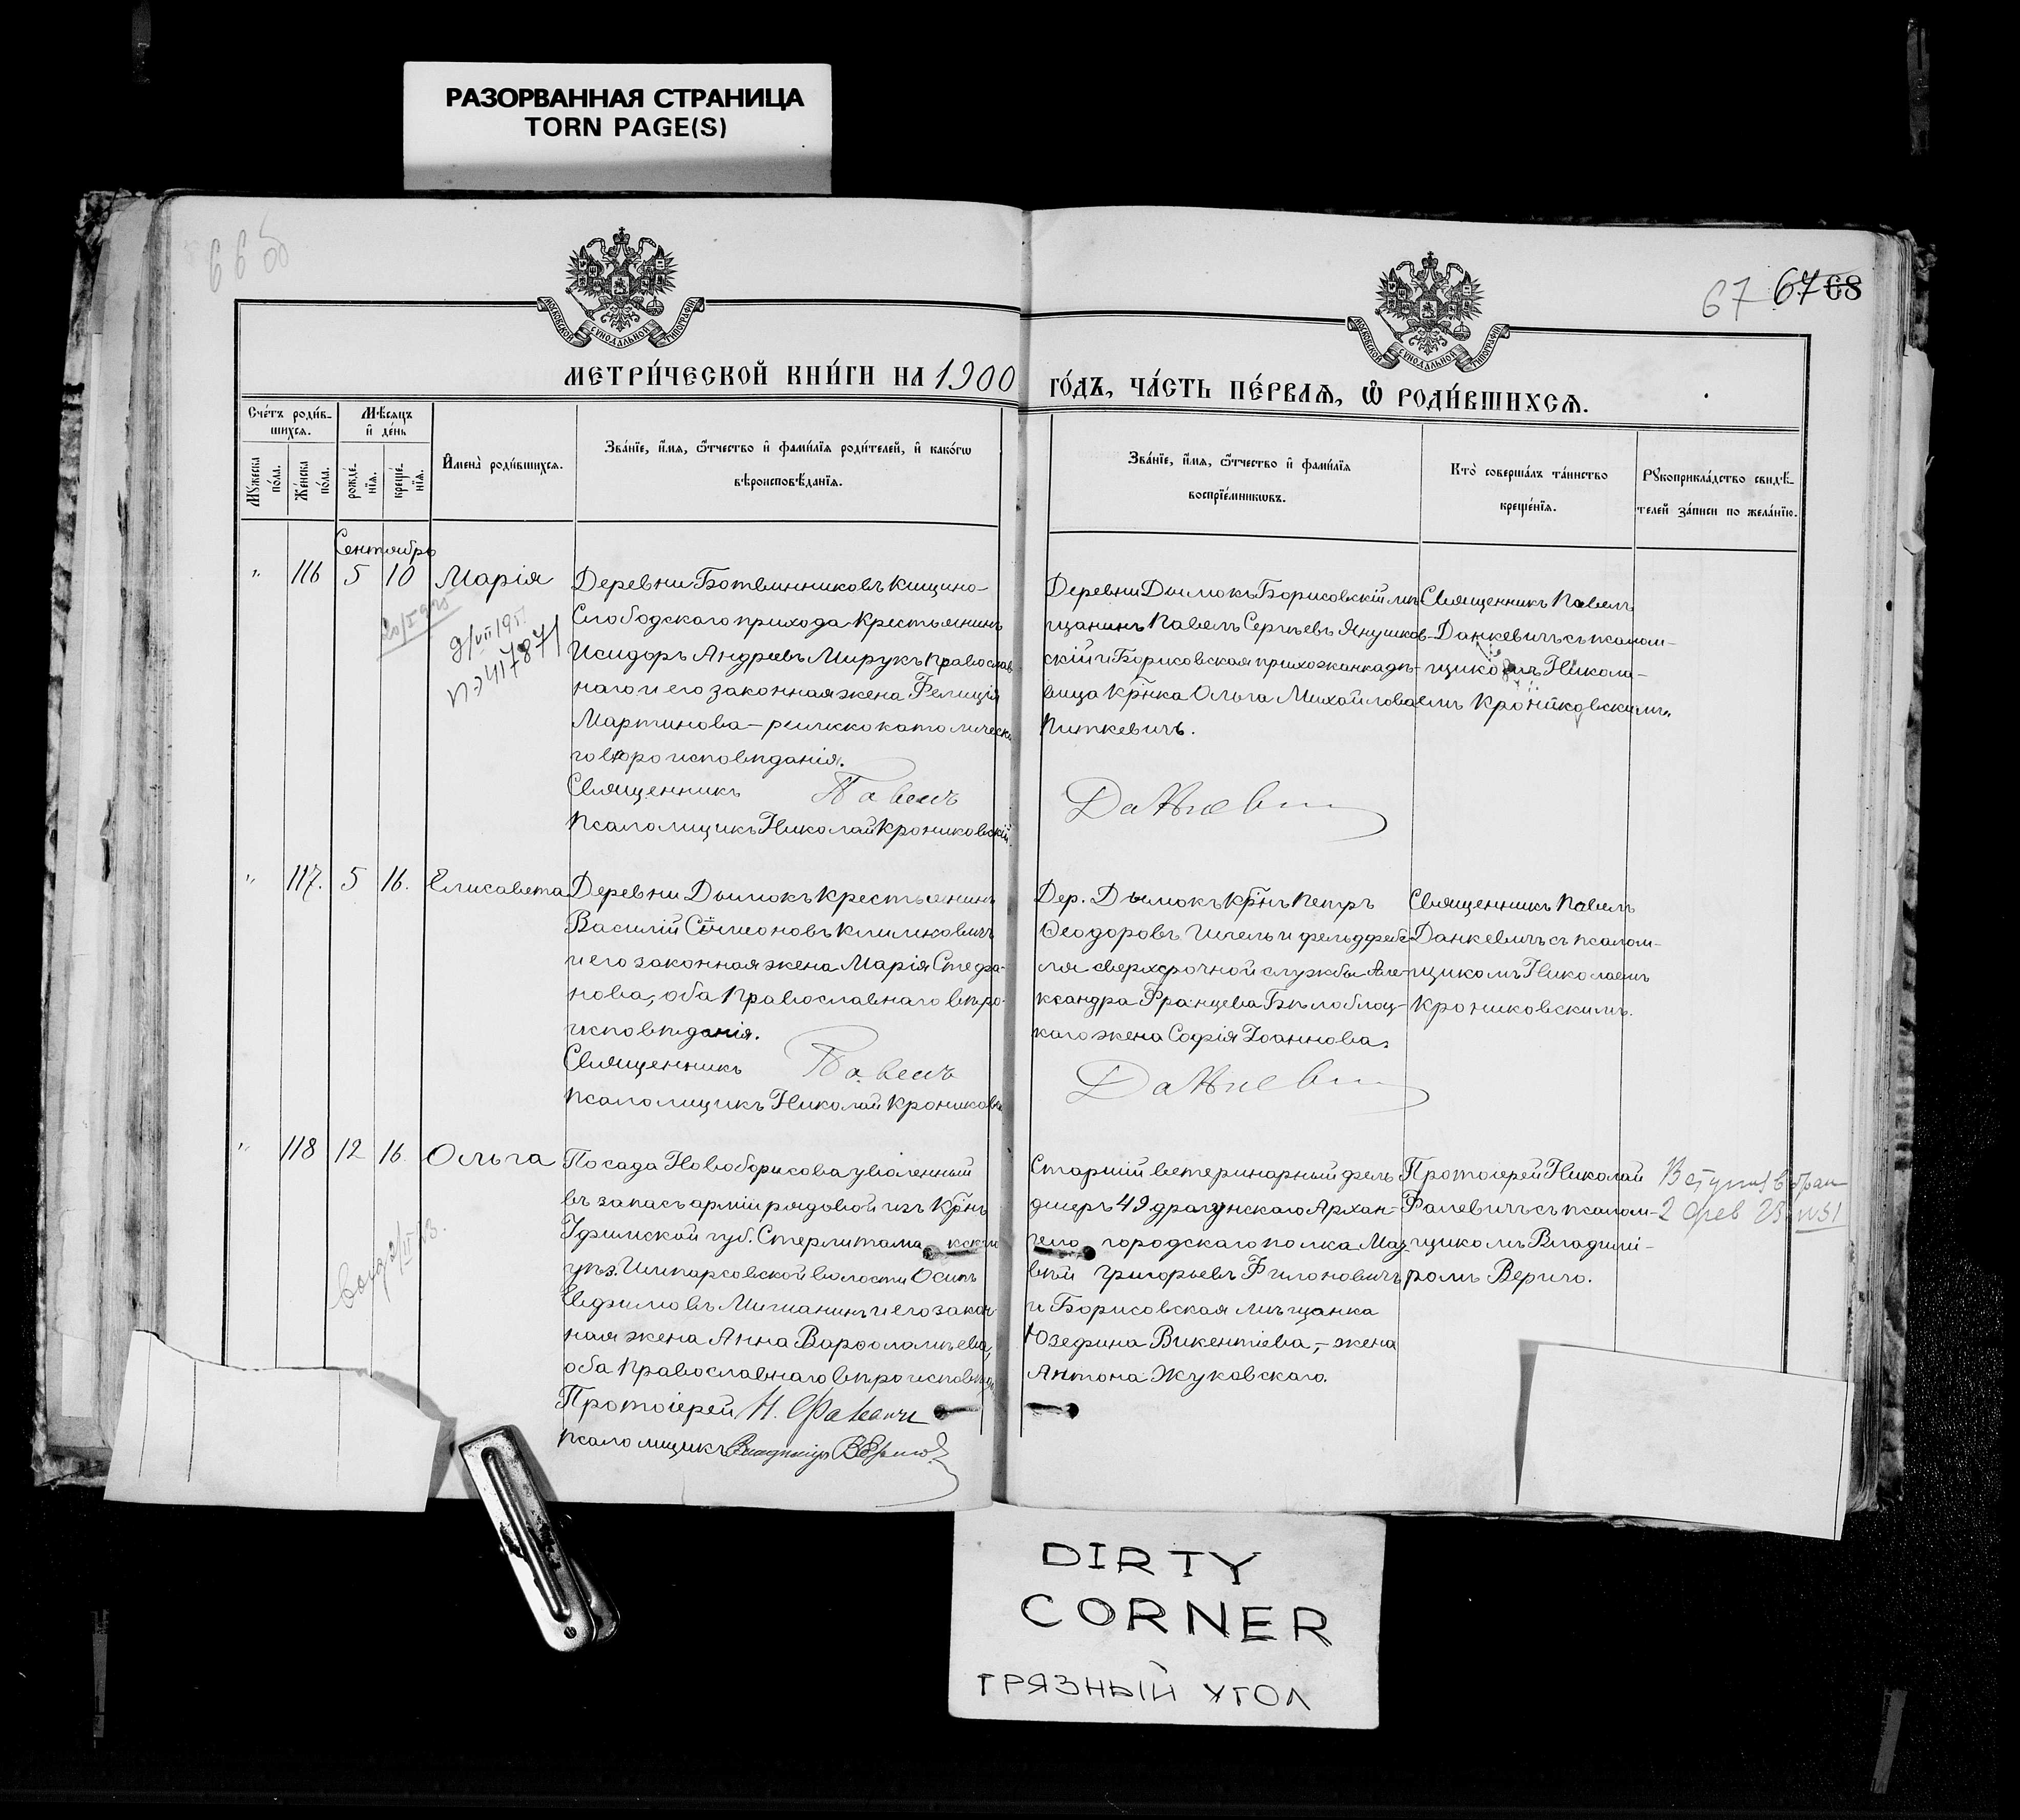 РАЗОРВАННАЯ СТРАНИЦА
TORN PAGE(S)
66
67 67 68
МОСКОВСКОЙ СѴНОДАЛЬНОЙ ТИПОГРАФІИ
МОСКОВСКОЙ СѴНОДАЛЬНОЙ ТИПОГРАФІИ
МЕТРИ́ЧЕСКОЙ КНИ́ГИ НА 1900
ГО́ДЪ, ЧА́СТЬ ПЕ́РВАѦ, Ѡ҆ РОДИ́ВШИХСѦ.
Сче́тъ роди́в-
шихсѧ.
Мꙋ́жеска
по́ла.
Же́нска
по́ла.
Мѣ́сѧцъ
и҆ де́нь
рожде́-
нїѧ.
креще́-
нїѧ.
И҆мена̀ роди́вшихсѧ.
Зва́нїе, и҆́мѧ, ѻ҆́тчество и҆ фами́лїѧ роди́телей, и҆ како́гѡ
вѣроисповѣ́данїѧ.
Зва́нїе, и҆́мѧ, ѻ҆́тчество и҆ фами́лїѧ
воспрїе́мникѡвъ.
Кто̀ соверша́лъ та́инство
креще́нїѧ.
Рꙋкоприкла́дство свидѣ́-
телей за́писи по жела́нїю.
Сентябрь
" 116 5 10 Марія
Деревни Ботвинниковъ Кищино-
Слободскаго прихода крестьянинъ
Исидоръ Андреевъ Мирукъ православ
наго и его законная жена Фелиція
Мартинова – римско католическа
го вѣроисповѣданія.
Священникъ Павелъ
Псаломщикъ Николай Крониковскій.
Деревни Дымокъ Борисовскій мѣ
щанинъ Павелъ Сергѣевъ Янушков-
скій и Борисовская прихожанка дѣ-
вица кр̃нка Ольга Михайлова
Питкевичъ.
Данкевичъ
Священникъ Павелъ
Данкевичъ съ псалом-
щикомъ Никола-
емъ Крониковскимъ.
№ 417871
" 117. 5 16. Елисавета
Деревни Дымокъ крестьянинъ
Василій Сѵмеоновъ Климковичъ
и его законная жена Марія Стефа-
нова, оба православнаго вѣро-
исповѣданія.
Священникъ Павелъ
Псаломщикъ Николай Крониковскій
Дер. Дымокъ кр̃нъ Петръ
Ѳеодоровъ Шпель и фельдфебе
ля сверхсрочной службы Але-
ксандра Францева Бѣлоблоц-
каго жена Софія Іоаннова.
Данкевичъ
Священникъ Павелъ
Данкевичъ съ псалом-
щикомъ Николаемъ
Крониковскимъ.
" 118 12 16. Ольга
Посада Новоборисова уволенный
въ запасъ арміи рядовой изъ кр̃нъ
Уфимской губ. Стерлитамакск
уѣз. Шипарсовской волости Осипъ
Ефимовъ Мишанинъ и его закон-
ная жена Анна Варѳоломѣева,
оба православнаго вѣроисповѣдан.
Протоіерей Н. Фалевичъ
Псаломщикъ Владиміръ Верило
Старшій ветеринарный фель
дшеръ 49 драгунскаго Архан-
гело городскаго полка Мат-
вѣй Григорьевъ Филоновичъ
и Борисовская мѣщанка
Юзефина Викентіева, – жена
Антона Жуковскаго.
Протоіерей Николай
Фалевичъ съ псалом-
щикомъ Владимі-
ромъ Верило.
Вступил в брак
2 фев
DIRTY
CORNER
ГРЯЗНЫЙ УГОЛ